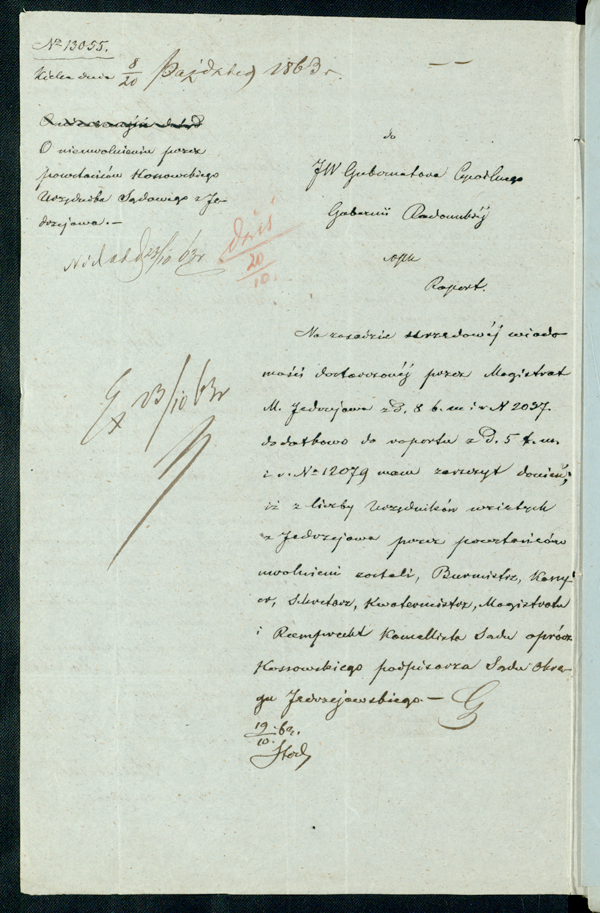 No 13055.
Kielce dnia 8/20 Paźdzher 1863 r.
O nieuwolnieniu przez
powstańców Kossowskiego
Urzędnika Sądowego z Ję-
drzejowa.—
dziś
20/10.
23/10 63r
do
JW Gubernatora Cywilnego
Gubernii Radomskiej
Raport.
Na zasadzie urzędowéj wiado
mości dostarczonéj przez Magistrat
M. Jędrzejowa z D. 8 b. m i r N 2037.
dodatkowo do raportu z D. 5 t. m.
i r. No 12079 mam zaszczyt donieść,
iż z liczby Urzędników wziętych
z Jędrzejowa przez powstańców
uwolnieni zostali, Burmistrz, Kasy-
er, Sekretarz, Kwatermistrz, Magistratu
i Remprecht Kancellista Sądu oprócz
Kossowskiego podpisarza Sądu Okrę-
gu Jędrzejewskiego.—
Ex 23/10 63r
19/10 63.